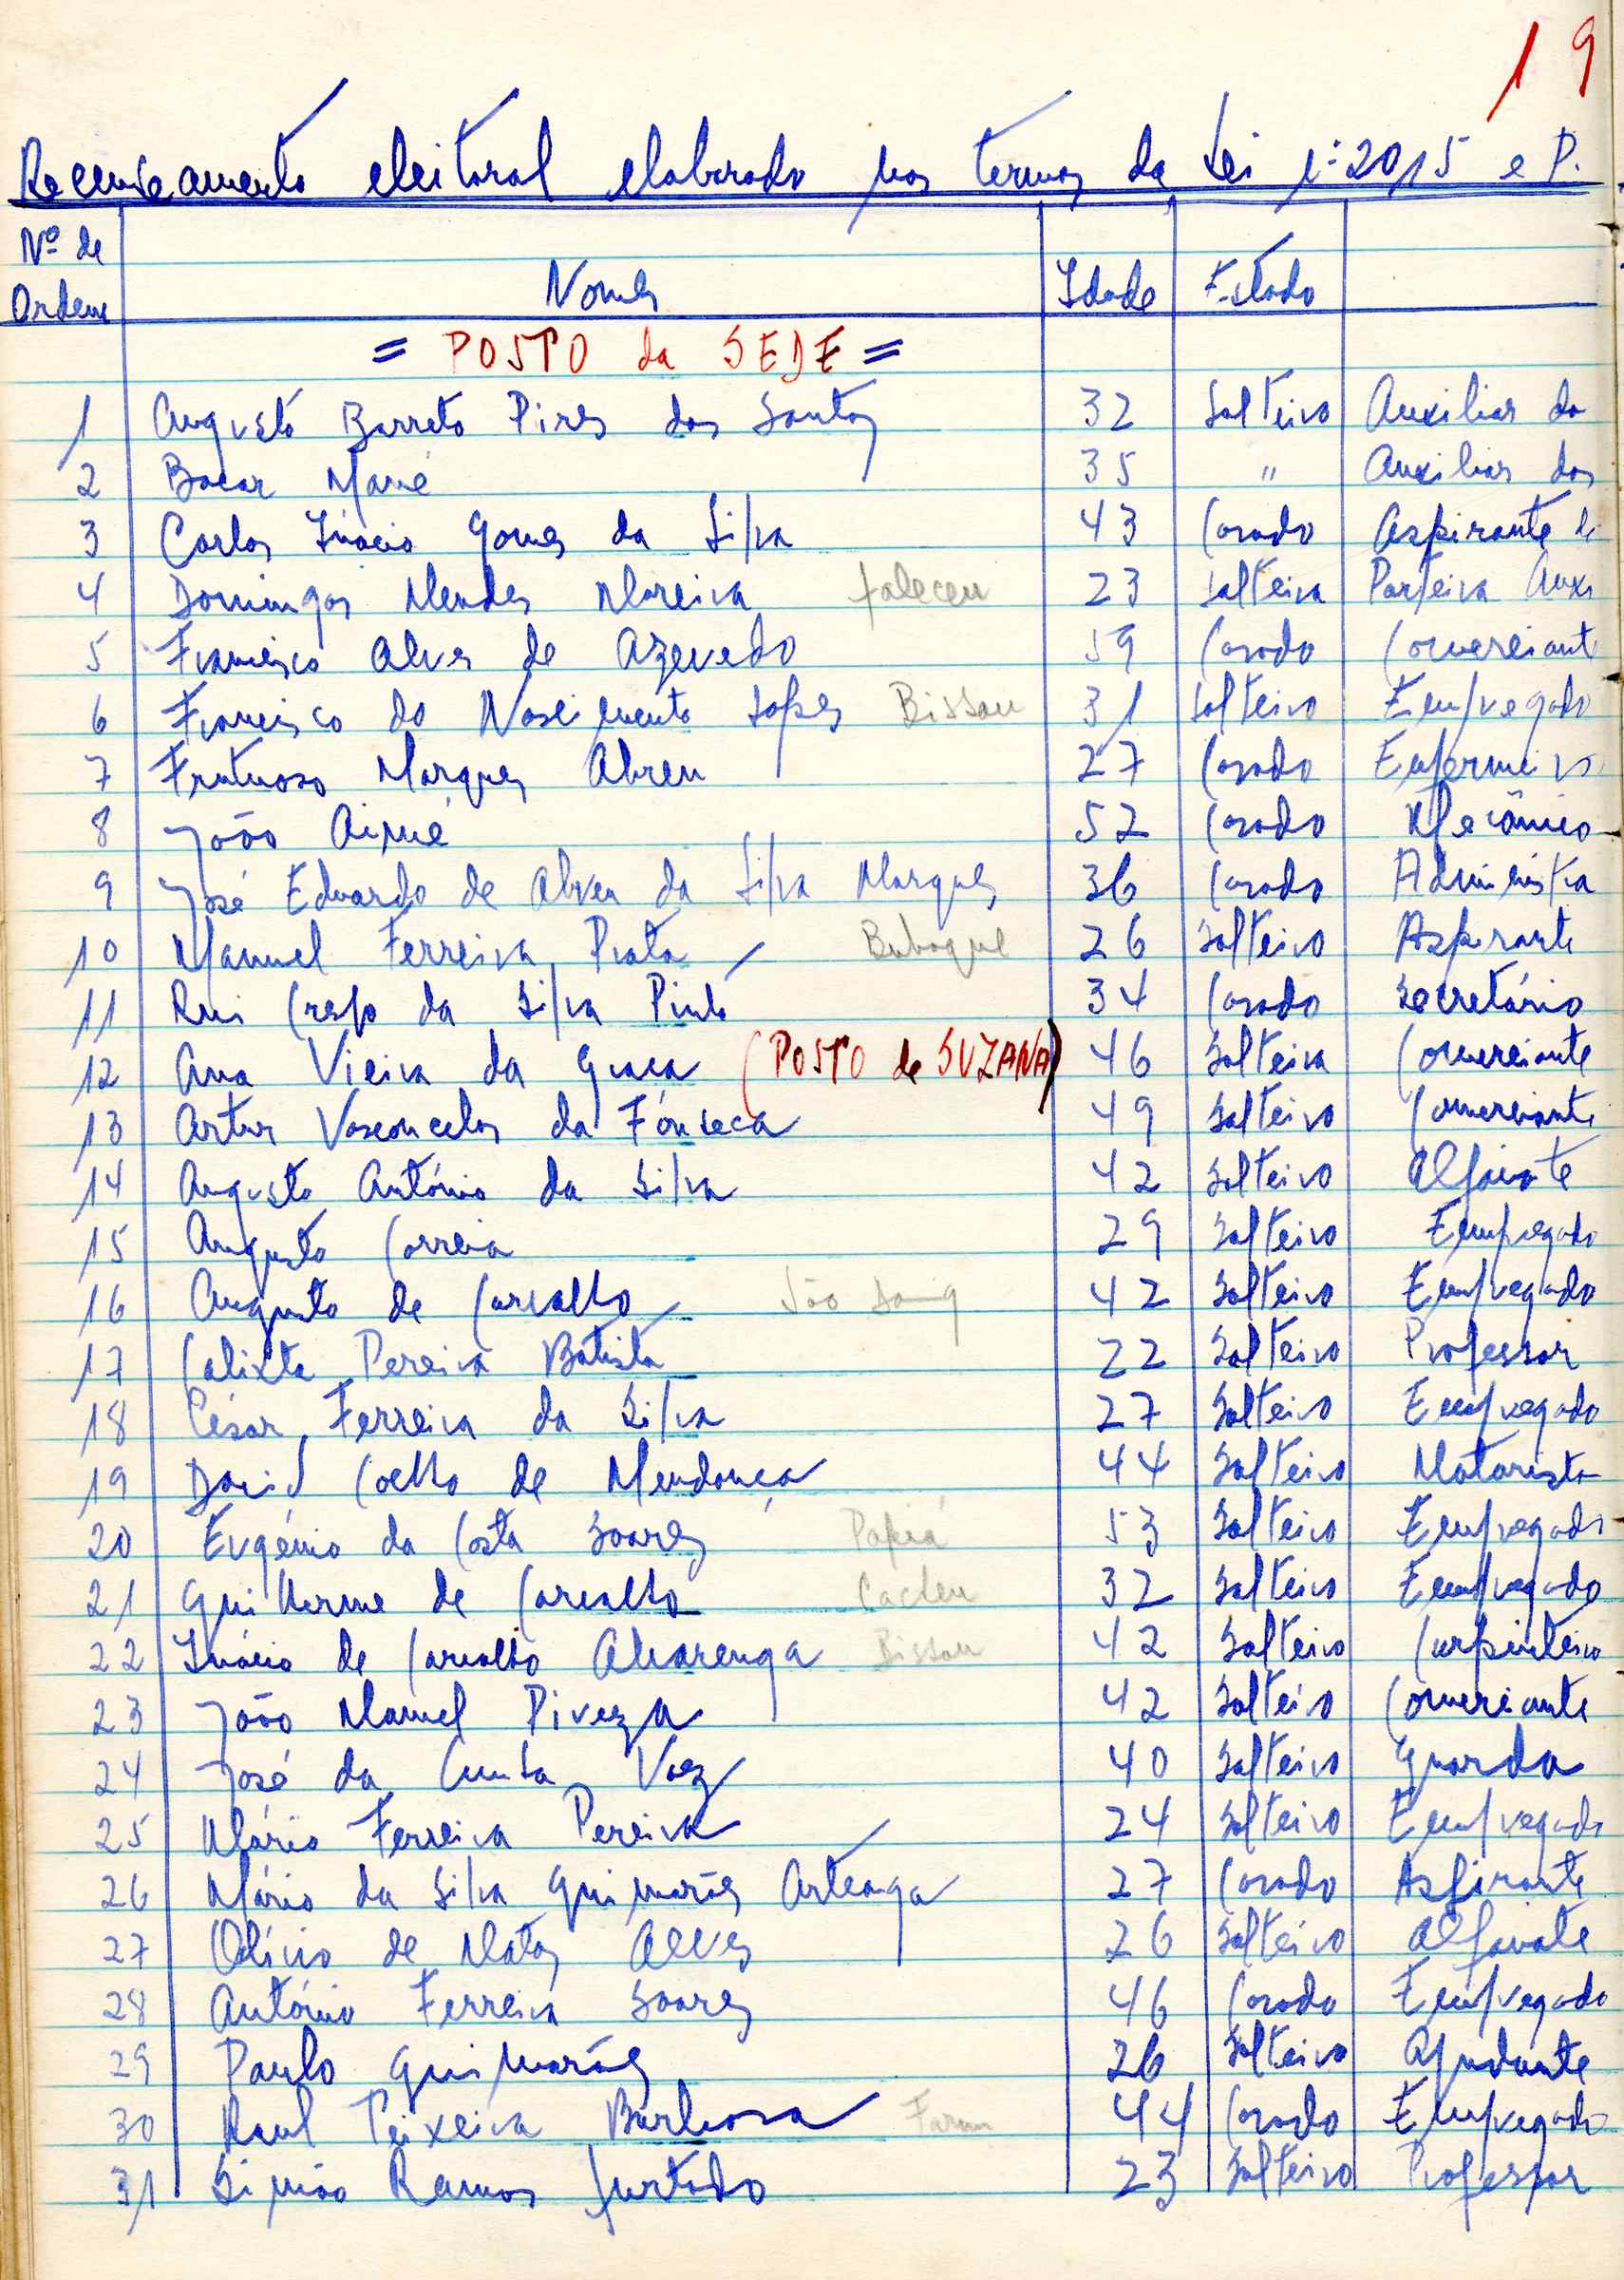 19
Recenseamento eleitoral elaborado nos termos da Lei nº 2015 e P.
Nº de Ordem Nomes Idade Estado
= POSTO da SEDE =
1 Augusto Barreto Pires dos Santos 32 Solteiro Auxiliar do
2 Bacar Mané 35 " Auxiliar dos
3 Carlos Inácio Gomes da Silva 43 Casado Aspirante
4 Domingas Mendes Moreira faleceu 23 Solteira Parteira Auxi
5 Francisco Alves de Azevedo 59 Casado Comerciant
6 Francisco do Nascimento Lopes Bissau 31 Solteiro Empregado
7 Frutuoso Marques Abreu 27 Casado Enfermeiro
8 João Aimé 52 Casado Mecânico
9 José Eduardo de Alven da Silva Marques 36 Casado Administra
10 Manuel Ferreira Prata Bubaque 26 Solteiro Aspirante
11 Rui Crespo da Silva Pinto 34 Casado Secretário
12 Ana Vieira da Graça (POSTO de SUZANA) 46 Solteira Comerciante
13 Artur Vasconcelos da Fonseca 49 Solteiro Comerciante
14 Augusto António da Silva 42 Solteiro Alfaiate
15 Augusto Correia 29 Solteiro Empregado
16 Augusto de Carvalho São 42 Solteiro Empregado
17 Calixta Pereira Batista 22 Solteiro Professor
18 César Ferreira da Silva 27 Solteiro Empregado
19 David Coelho de Mendonça 44 Solteiro Motorista
20 Eugénio da Costa Soares 53 Solteiro Empregado
21 Guilherme de Carvalho Cacheu 32 Solteiro Empregado
22 Inácio de Carvalho Alvarenga Bissau 42 Solteiro Carpinteiro
23 João Manuel Piveza 42 Solteiro Comerciante
24 José da Cunha Vaz 40 Solteiro Guarda
25 Mário Ferreira Pereira 24 Solteiro Empregado
26 Mário da Silva Guimarães Arteaga 27 Casado Aspirante
27 Olívio de Matos Alves 26 Solteiro Alfaiate
28 António Ferreira Soares 46 Casado Empregado
29 Paulo Guimarães 26 Solteiro Ajudante
30 Raul Teixeira Barbosa Farim 44 Casado Empregado
31 Simão Ramos Furtado 23 Solteiro Professor